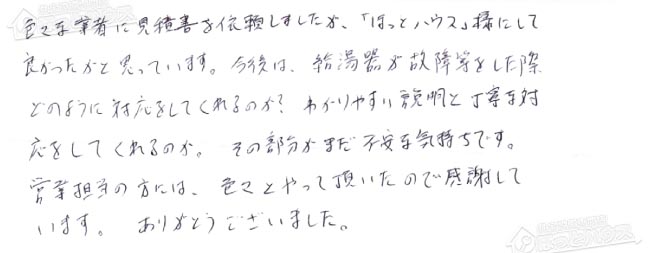 色々な業者に見積書を依頼しましたが、「ほっとハウス」様にして
良かったかと思っています。今後は、給湯器が故障等をした際
どのように対応をしてくれるのか？わかりやすい説明と丁寧な対
応をしてくれるのか。その部分がまだ不安な気持ちです。
営業担当の方には、色々とやって頂いたので感謝して
います。ありがとうございました。